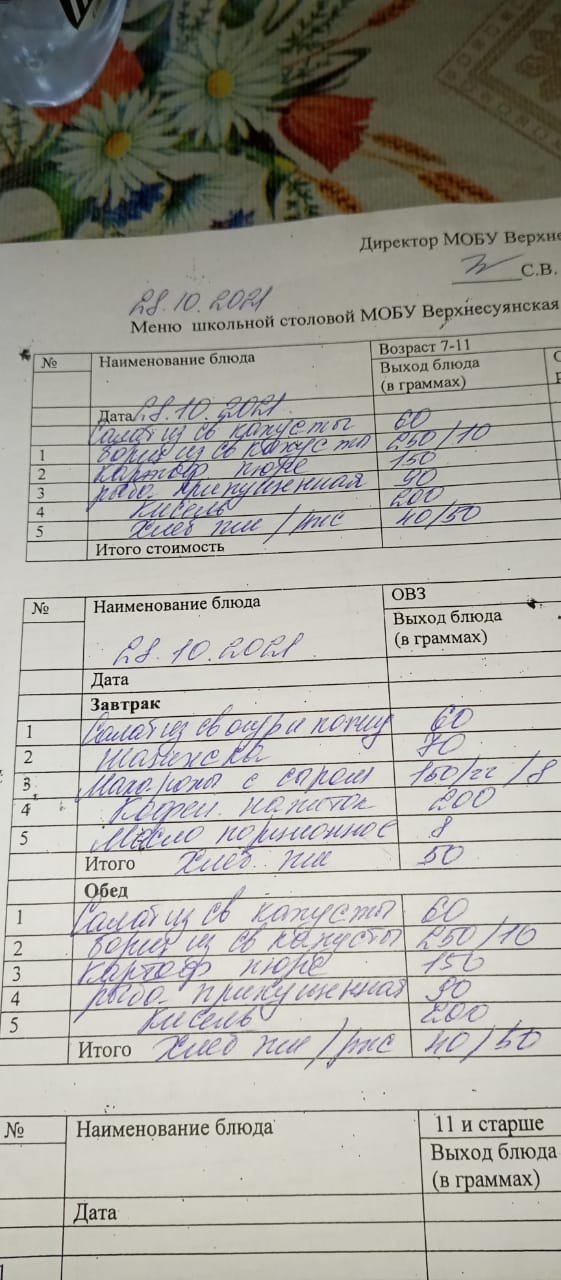 Директор МОБУ Верхне
С.В.
28.10.2021
Меню школьной столовой МОБУ Верхнесуянская
№ Наименование блюда Возраст 7-11
Выход блюда
(в граммах)
Дата 28.10.2021
Салат из св капусты 60
1 борщ из св капусты 250/10
2 картоф пюре 150
3 рыба припущенная 90
4 Кисель 200
5 Хлеб пш/рж 40/50
Итого стоимость
№ Наименование блюда ОВЗ
Выход блюда
(в граммах)
28.10.2021
Дата
Завтрак
1 Салат из св огур и помид 60
2 70
3 Макароны с сыром 150/
4 Кофейн напиток 200
5 Масло порционное 8
Итого Хлеб пш 50
Обед
1 Салат из св капусты 60
2 борщ из св капусты 250/10
3 Картоф пюре 150
4 рыба припущенная 90
5 Кисель 200
Итого Хлеб пш/рж 40/50
№ Наименование блюда 11 и старше
Выход блюда
(в граммах)
Дата
1